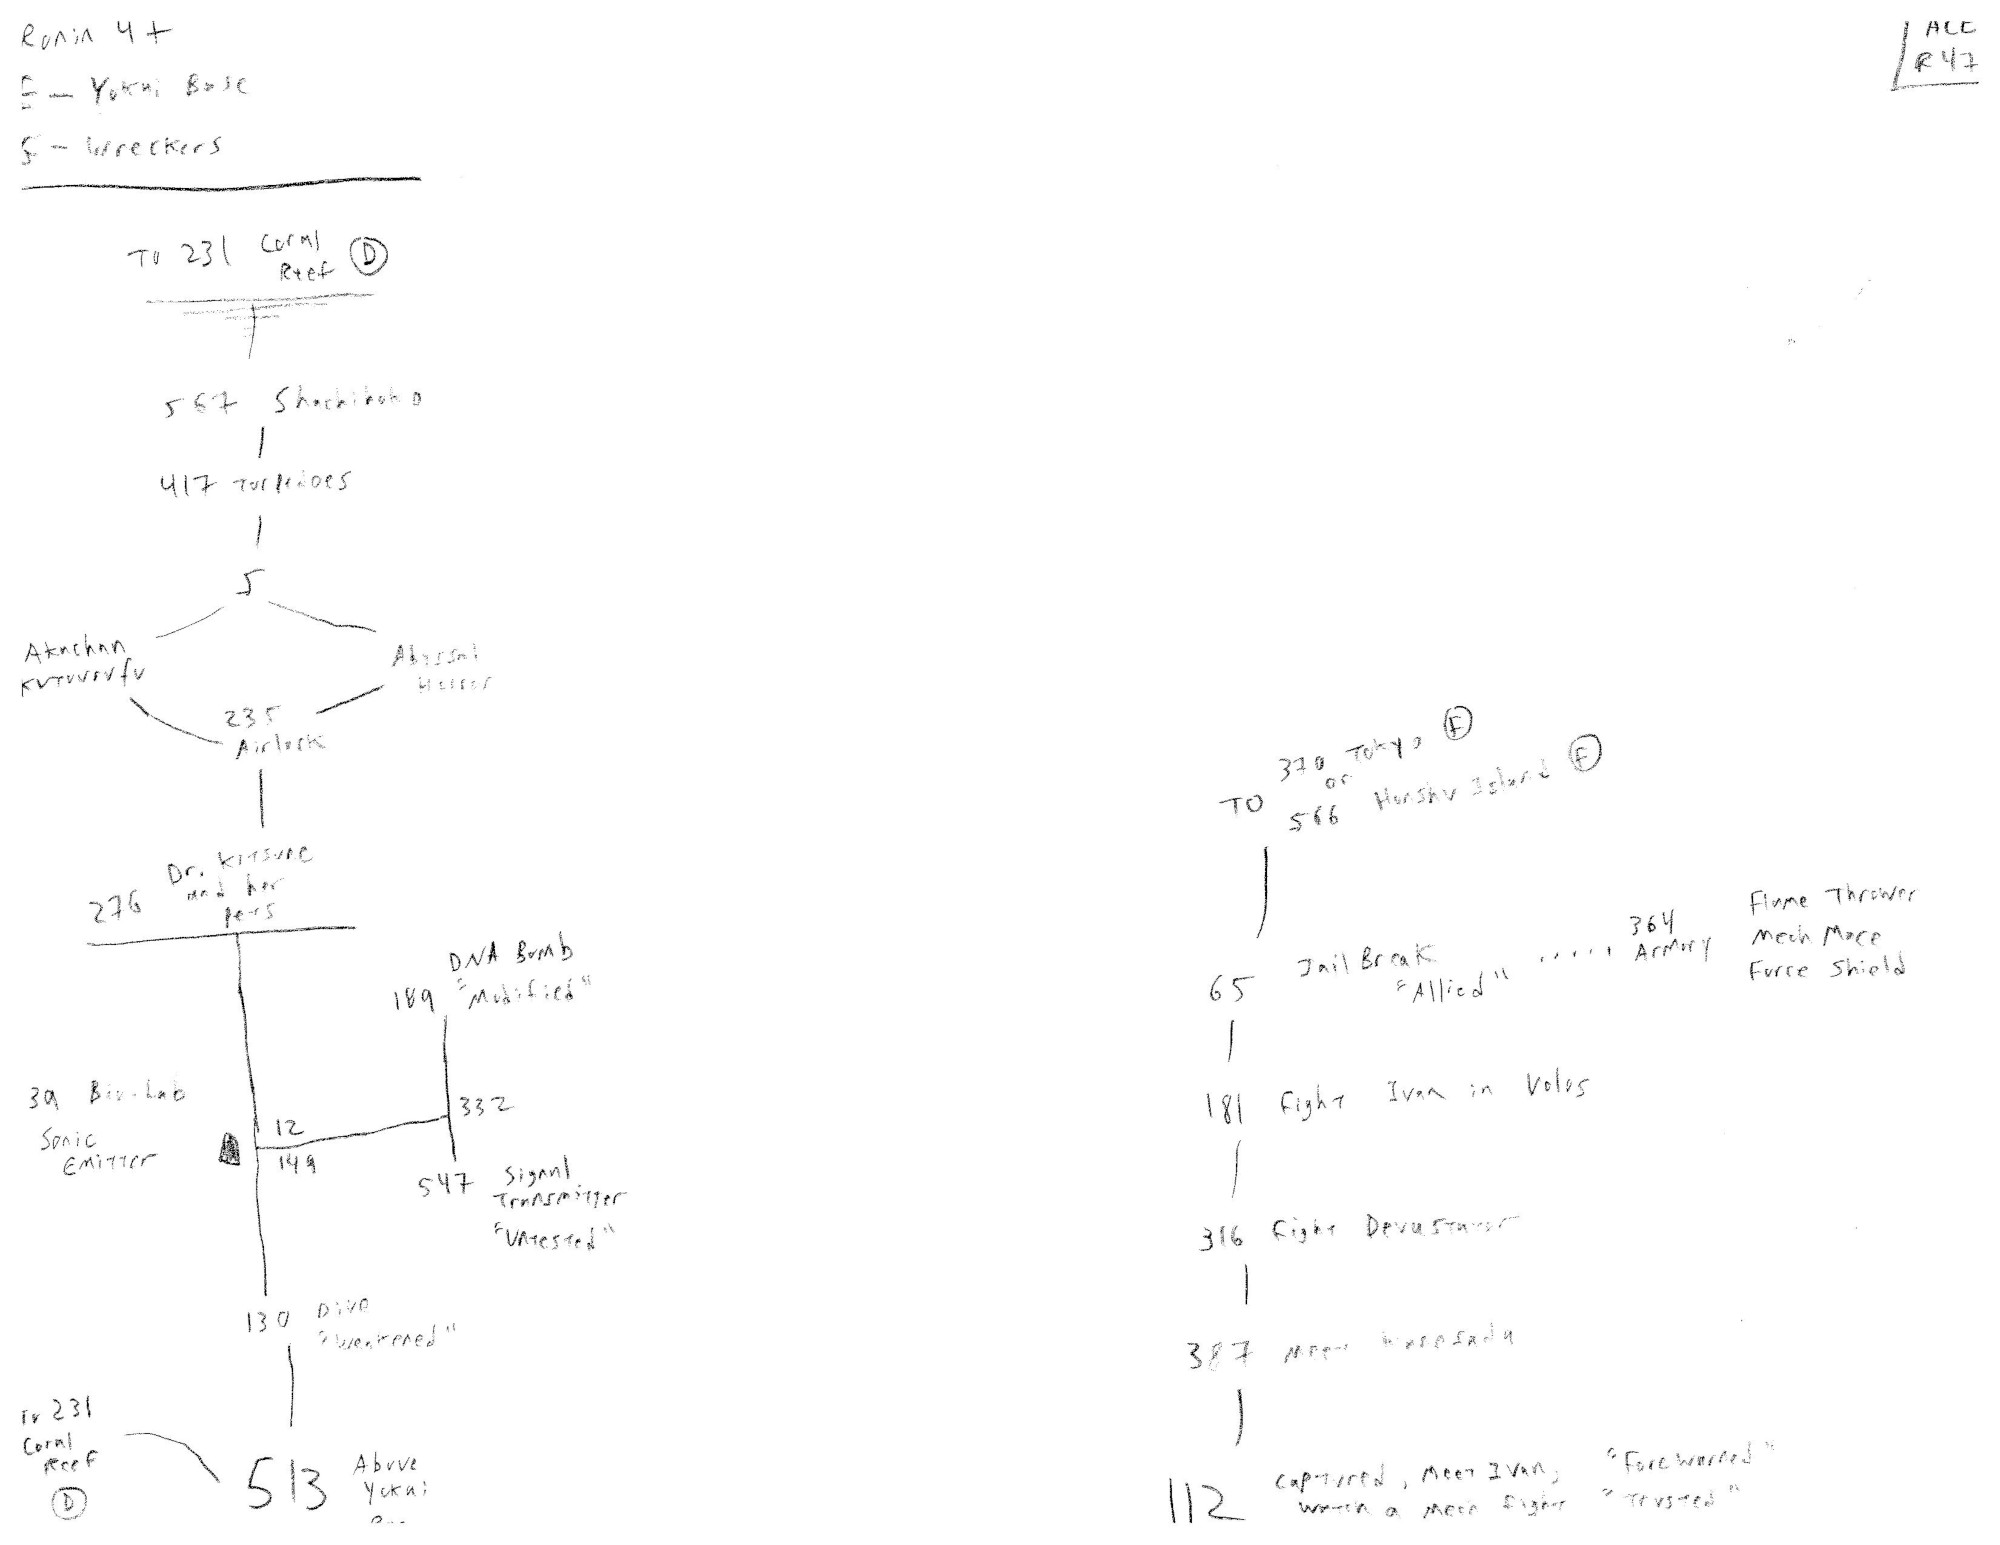 Ronin 47
E - Yokai Base
F - Wreckers
ACE
R47
To 231 Coral
Reef D
567 Shachihoko
417 Torpedoes
5
Akachan
Kutuurufu
Abyssal
Horror
235
Airlock
276 Dr. Kitsune
and her
pets
DNA Bomb
189 "Modified"
39 Bio-Lab
Sonic
Emitter
12
149
332
547 Signal
Transmitter
"Untested"
130 Dive
"Weakened"
To 231
Coral
Reef
D
513 Above
Yokai
TO 370 Tokyo F
or
566 Honshu Island F
65 Jail Break
"Allied"
364
Armory
Flame Thrower
Mech Mace
Force Shield
181 Fight Ivan in Volos
316 Fight Devastator
387 Meet
112 Captured, Meet Ivan,
watch a Mech fight
"Forewarned"
"Trusted"